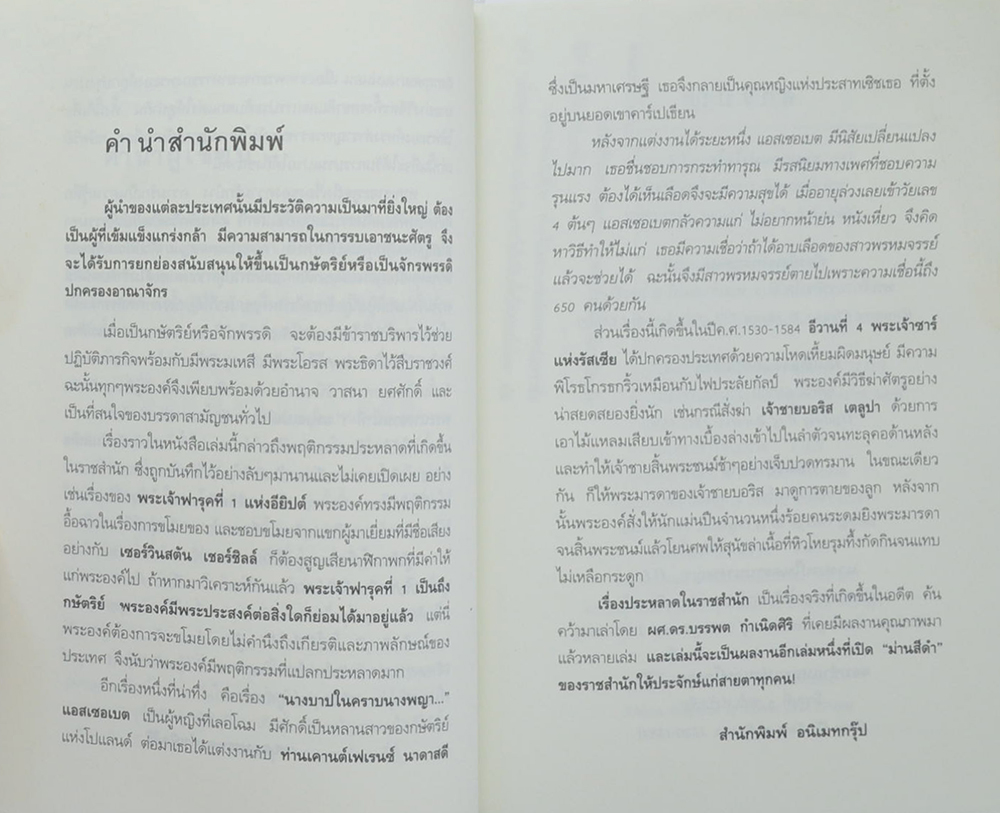 คำ นำ สำนักพิมพ์
ผู้นำของแต่ละประเทศนั้นมีประวัติความเป็นมาที่ยิ่งใหญ่ ต้อง
เป็นผู้ที่เข้มแข็งแกร่งกล้า มีความสามารถในการรบเอาชนะศัตรู จึง
จะได้รับการยกย่องสนับสนุนให้ขึ้นเป็นกษัตริย์หรือเป็นจักรพรรดิ
ปกครองอาณาจักร
เมื่อเป็นกษัตริย์หรือจักพรรดิ จะต้องมีข้าราชบริพารไว้ช่วย
ปฏิบัติภารกิจพร้อมกับมีพระมเหสี มีพระโอรส พระธิดาไว้สืบราชวงศ์
ฉะนั้นทุกๆพระองค์จึงเพียบพร้อมด้วยอำนาจ วาสนา ยศศักดิ์ และ
เป็นที่สนใจของบรรดาสามัญชนทั่วไป
เรื่องราวในหนังสือเล่มนี้กล่าวถึงพฤติกรรมประหลาดที่เกิดขึ้น
ในราชสำนัก ซึ่งถูกบันทึกไว้อย่างลับๆมานานและไม่เคยเปิดเผย อย่าง
เช่นเรื่องของ พระเจ้าฟารุคที่ 1 แห่งอียิปต์ พระองค์ทรงมีพฤติกรรม
อื้อฉาวในเรื่องการขโมยของ และชอบขโมยจากแขกผู้มาเยี่ยมที่มีชื่อเสียง
อย่างกับ เซอร์วินสตัน เชอร์ชิลล์ ก็ต้องสูญเสียนาฬิกาพกที่มีค่าให้
แก่พระองค์ไป ถ้าหากมาวิเคราะห์กันแล้ว พระเจ้าฟารุคที่ 1 เป็นถึง
กษัตริย์ พระองค์มีพระประสงค์ต่อสิ่งใดก็ย่อมได้มาอยู่แล้ว แต่นี่
พระองค์ต้องการจะขโมยโดยไม่คำนึงถึงเกียรติและภาพลักษณ์ของ
ประเทศ จึงนับว่าพระองค์มีพฤติกรรมที่แปลกประหลาดมาก
อีกเรื่องหนึ่งที่น่าทึ่ง คือเรื่อง "นางบาปในคราบนางพญา..."
แอสเซอเบต เป็นผู้หญิงที่เลอโฉม มีศักดิ์เป็นหลานสาวของกษัตริย์
แห่งโปแลนด์ ต่อมาเธอได้แต่งงานกับ ท่านเคานต์เฟเรนซ์ นาดาสดี
ซึ่งเป็นมหาเศรษฐี เธอจึงกลายเป็นคุณหญิงแห่งประสาทเซิชเธอ ที่ตั้ง
อยู่บนยอดเขาคาร์เปเธียน
หลังจากแต่งงานได้ระยะหนึ่ง แอสเซอเบต มีนิสัยเปลี่ยนแปลง
ไปมาก เธอชื่นชอบการกระทำทารุณ มีรสนิยมทางเพศที่ชอบความ
รุนแรง ต้องได้เห็นเลือดจึงจะมีความสุขได้ เมื่ออายุล่วงเลยเข้าวัยเลข
4 ต้นๆ แอสเซอเบตกลัวความแก่ ไม่อยากหน้าย่น หนังเหี่ยว จึงคิด
หาวิธีทำให้ไม่แก่ เธอมีความเชื่อว่าถ้าได้อาบเลือดของสาวพรหมจรรย์
แล้วจะช่วยได้ ฉะนั้นจึงมีสาวพรหมจรรย์ตายไปเพราะความเชื่อนี้ถึง
650 คนด้วยกัน
ส่วนเรื่องนี้เกิดขึ้นในปีค.ศ.1530-1584 อีวานที่ 4 พระเจ้าซาร์
แห่งรัสเซีย ได้ปกครองประเทศด้วยความโหดเหี้ยมผิดมนุษย์ มีความ
พิโรธโกรธกริ้วเหมือนกับไฟประลัยกัลป์ พระองค์มีวิธีฆ่าศัตรูอย่าง
น่าสยดสยองยิ่งนัก เช่นกรณีสั่งฆ่า เจ้าชายบอริส เตลูปา ด้วยการ
เอาไม้แหลมเสียบเข้าทางเบื้องล่างเข้าไปในลำตัวจนทะลุคอด้านหลัง
และทำให้เจ้าชายสิ้นพระชนม์ช้าๆอย่างเจ็บปวดทรมาน ในขณะเดียว
กัน ก็ให้พระมารดาของเจ้าชายบอริส มาดูการตายของลูก หลังจาก
นั้นพระองค์สั่งให้นักแม่นปืนจำนวนหนึ่งร้อยคนระดมยิงพระมารดา
จนสิ้นพระชนม์แล้วโยนศพให้สุนัขล่าเนื้อที่หิวโหยรุมทึ้งกัดกินจนแทบ
ไม่เหลือกระดูก
เรื่องประหลาดในราชสำนัก เป็นเรื่องจริงที่เกิดขึ้นในอดีต ค้น
คว้ามาเล่าโดย ผศ.ดร.บรรพต กำเนิดศิริ ที่เคยมีผลงานคุณภาพมา
แล้วหลายเล่ม และเล่มนี้จะเป็นผลงานอีกเล่มหนึ่งที่เปิด "ม่านสีดำ"
ของราชสำนักให้ประจักษ์แก่สายตาทุกคน!
สำนักพิมพ์ อนิเมทกรุ๊ป